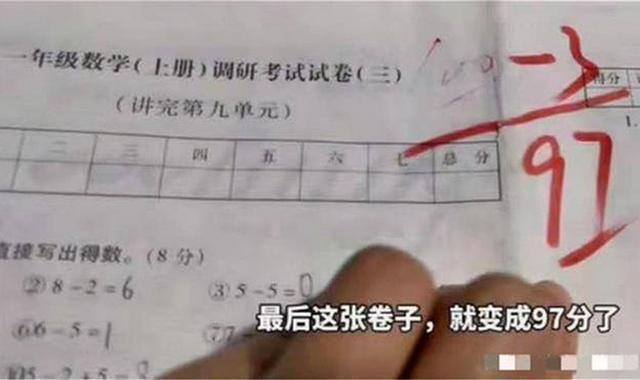 一年级数学(上册)调研考试试卷(三)
-3
(讲完第九单元)
得分
97
1.
二 三 四 五 六 七 总分
直接写出得数。(8分)
②8-2=6 ③5-5=0
⑥6-5=1 ⑦7
最后这张卷子，就变成97分了